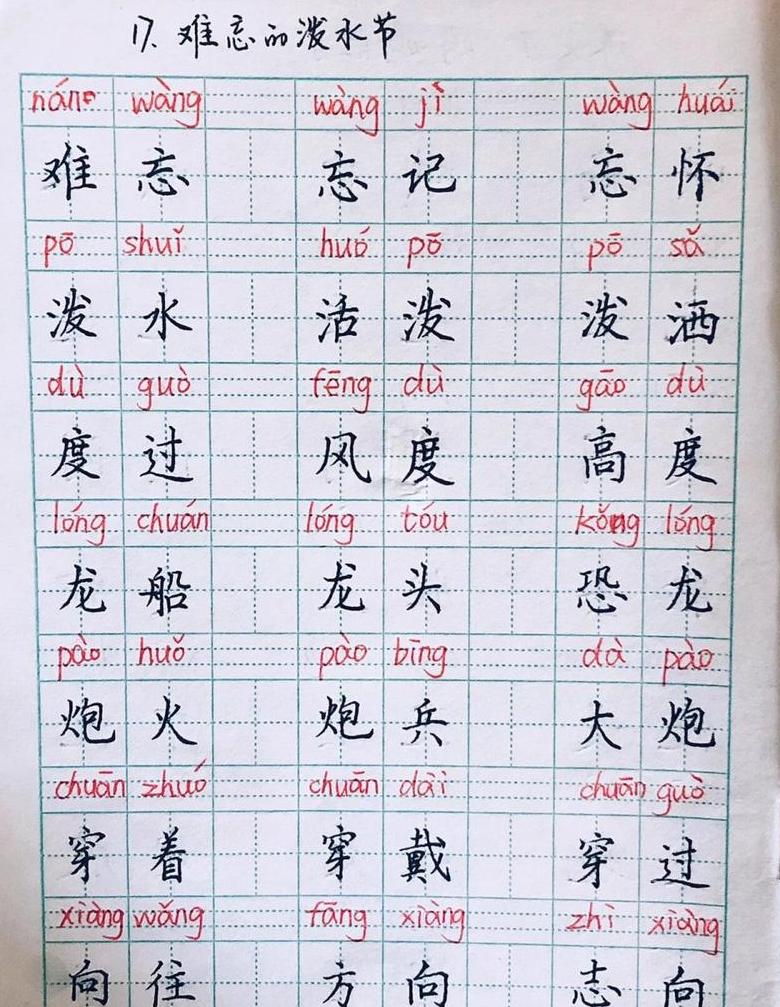 17. 难忘的泼水节
nán wàng wàng jì wàng huái
难忘 忘记 忘怀
pō shuǐ huó pō pō sǎ
泼水 活泼 泼洒
dù guò fēng dù gāo dù
度过 风度 高度
lóng chuán lóng tóu kǒng lóng
龙船 龙头 恐龙
pào huǒ pào bīng dà pào
炮火 炮兵 大炮
chuān zhuó chuān dài chuān guò
穿着 穿戴 穿过
xiàng wǎng fāng xiàng zhì xiàng
向往 方向 志向